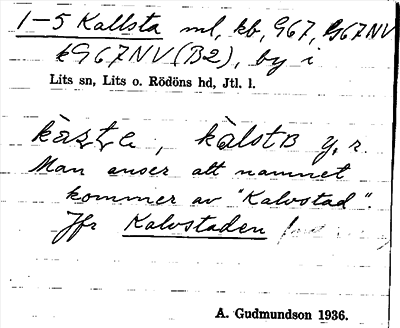 1-5 Kallsta ml, kb, G67, G67NV
kG67NV(B2), by i
Lits sn, Lits o. Rödöns hd, Jtl. l.
y, r.
Man anser att namnet
kommer av "Kalvstad".
Jfr Kalvstaden
A. Gudmundson 1936.